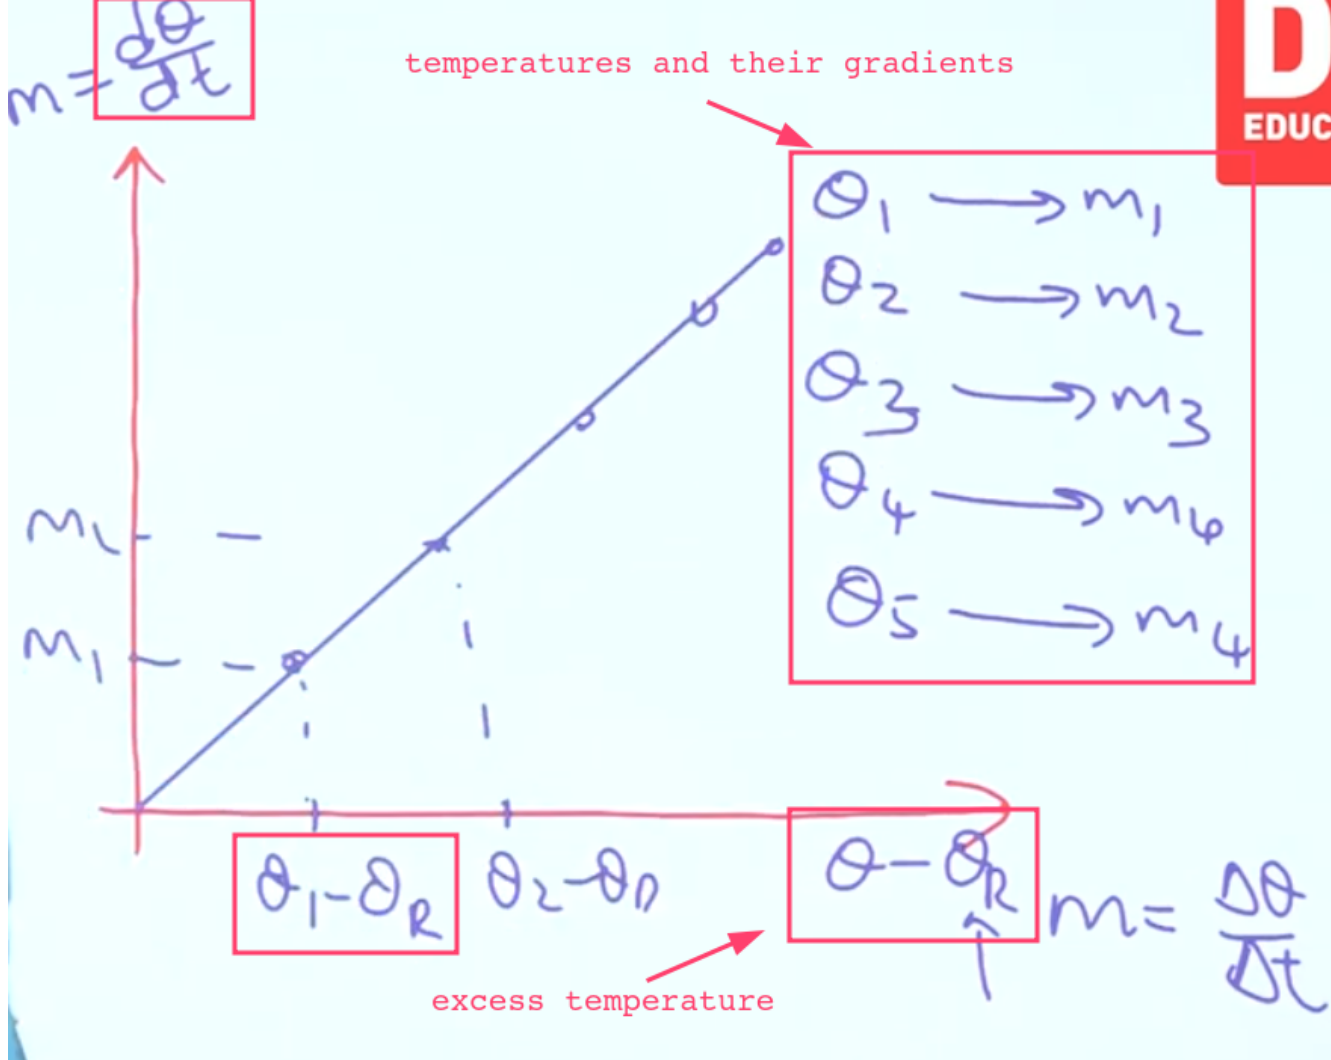 m = dθ/dt
temperatures and their gradients
D
EDUC
θ1 → m1
θ2 → m2
θ3 → m3
θ4 → m4
θ5 → m4
m1
θ1 - θR
θ - θR
m = Δθ/Δt
excess temperature